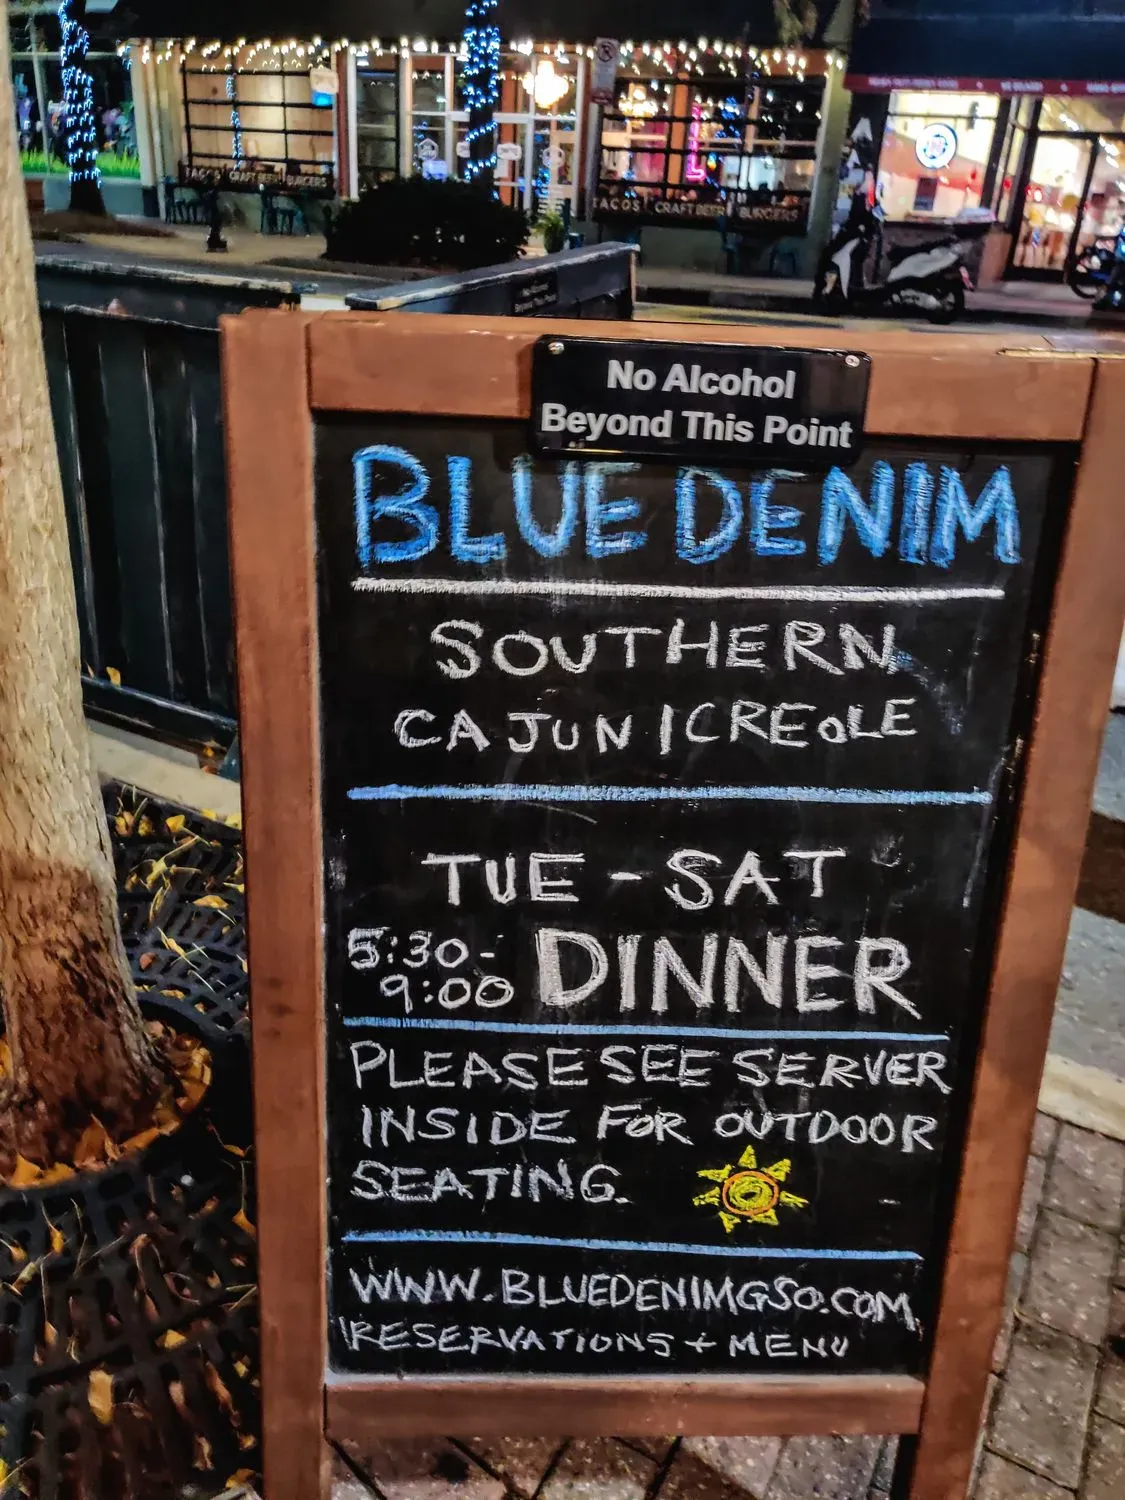 TACOS CRAFT BEER BURGERS
TACOS CRAFT BEER BURGERS
No Alcohol
Beyond This Point
BLUE DENIM
SOUTHERN
CAJUN | CREOLE
TUE - SAT
5:30-
9:00 DINNER
PLEASE SEE SERVER
INSIDE FOR OUTDOOR
SEATING.
WWW.BLUEDENIMGSO.COM
RESERVATIONS + MENU